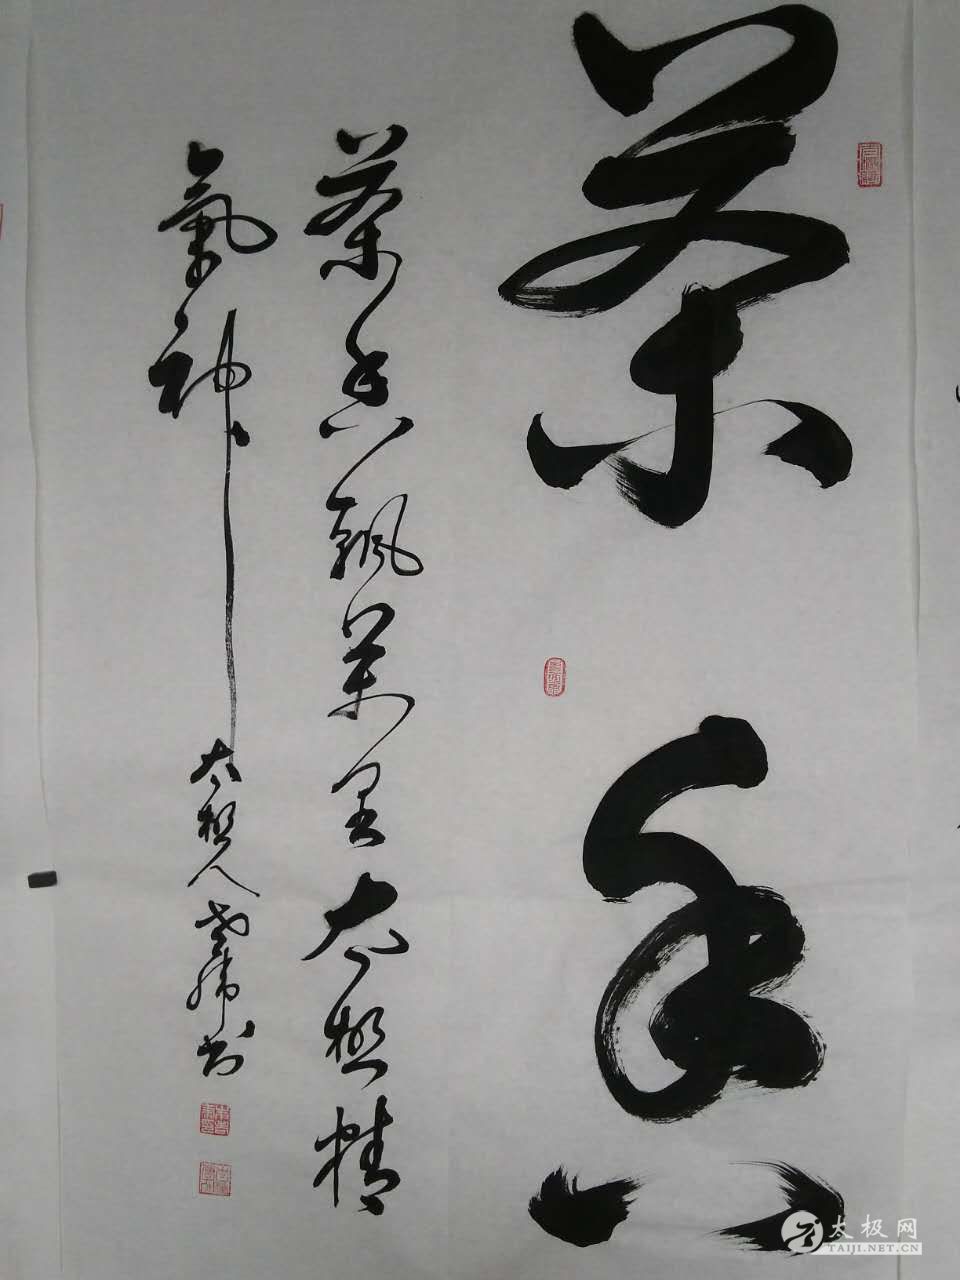 茶香
茶香飘万里太极精
氣神
太极人
书
太极网
TAIJI.NET.CN